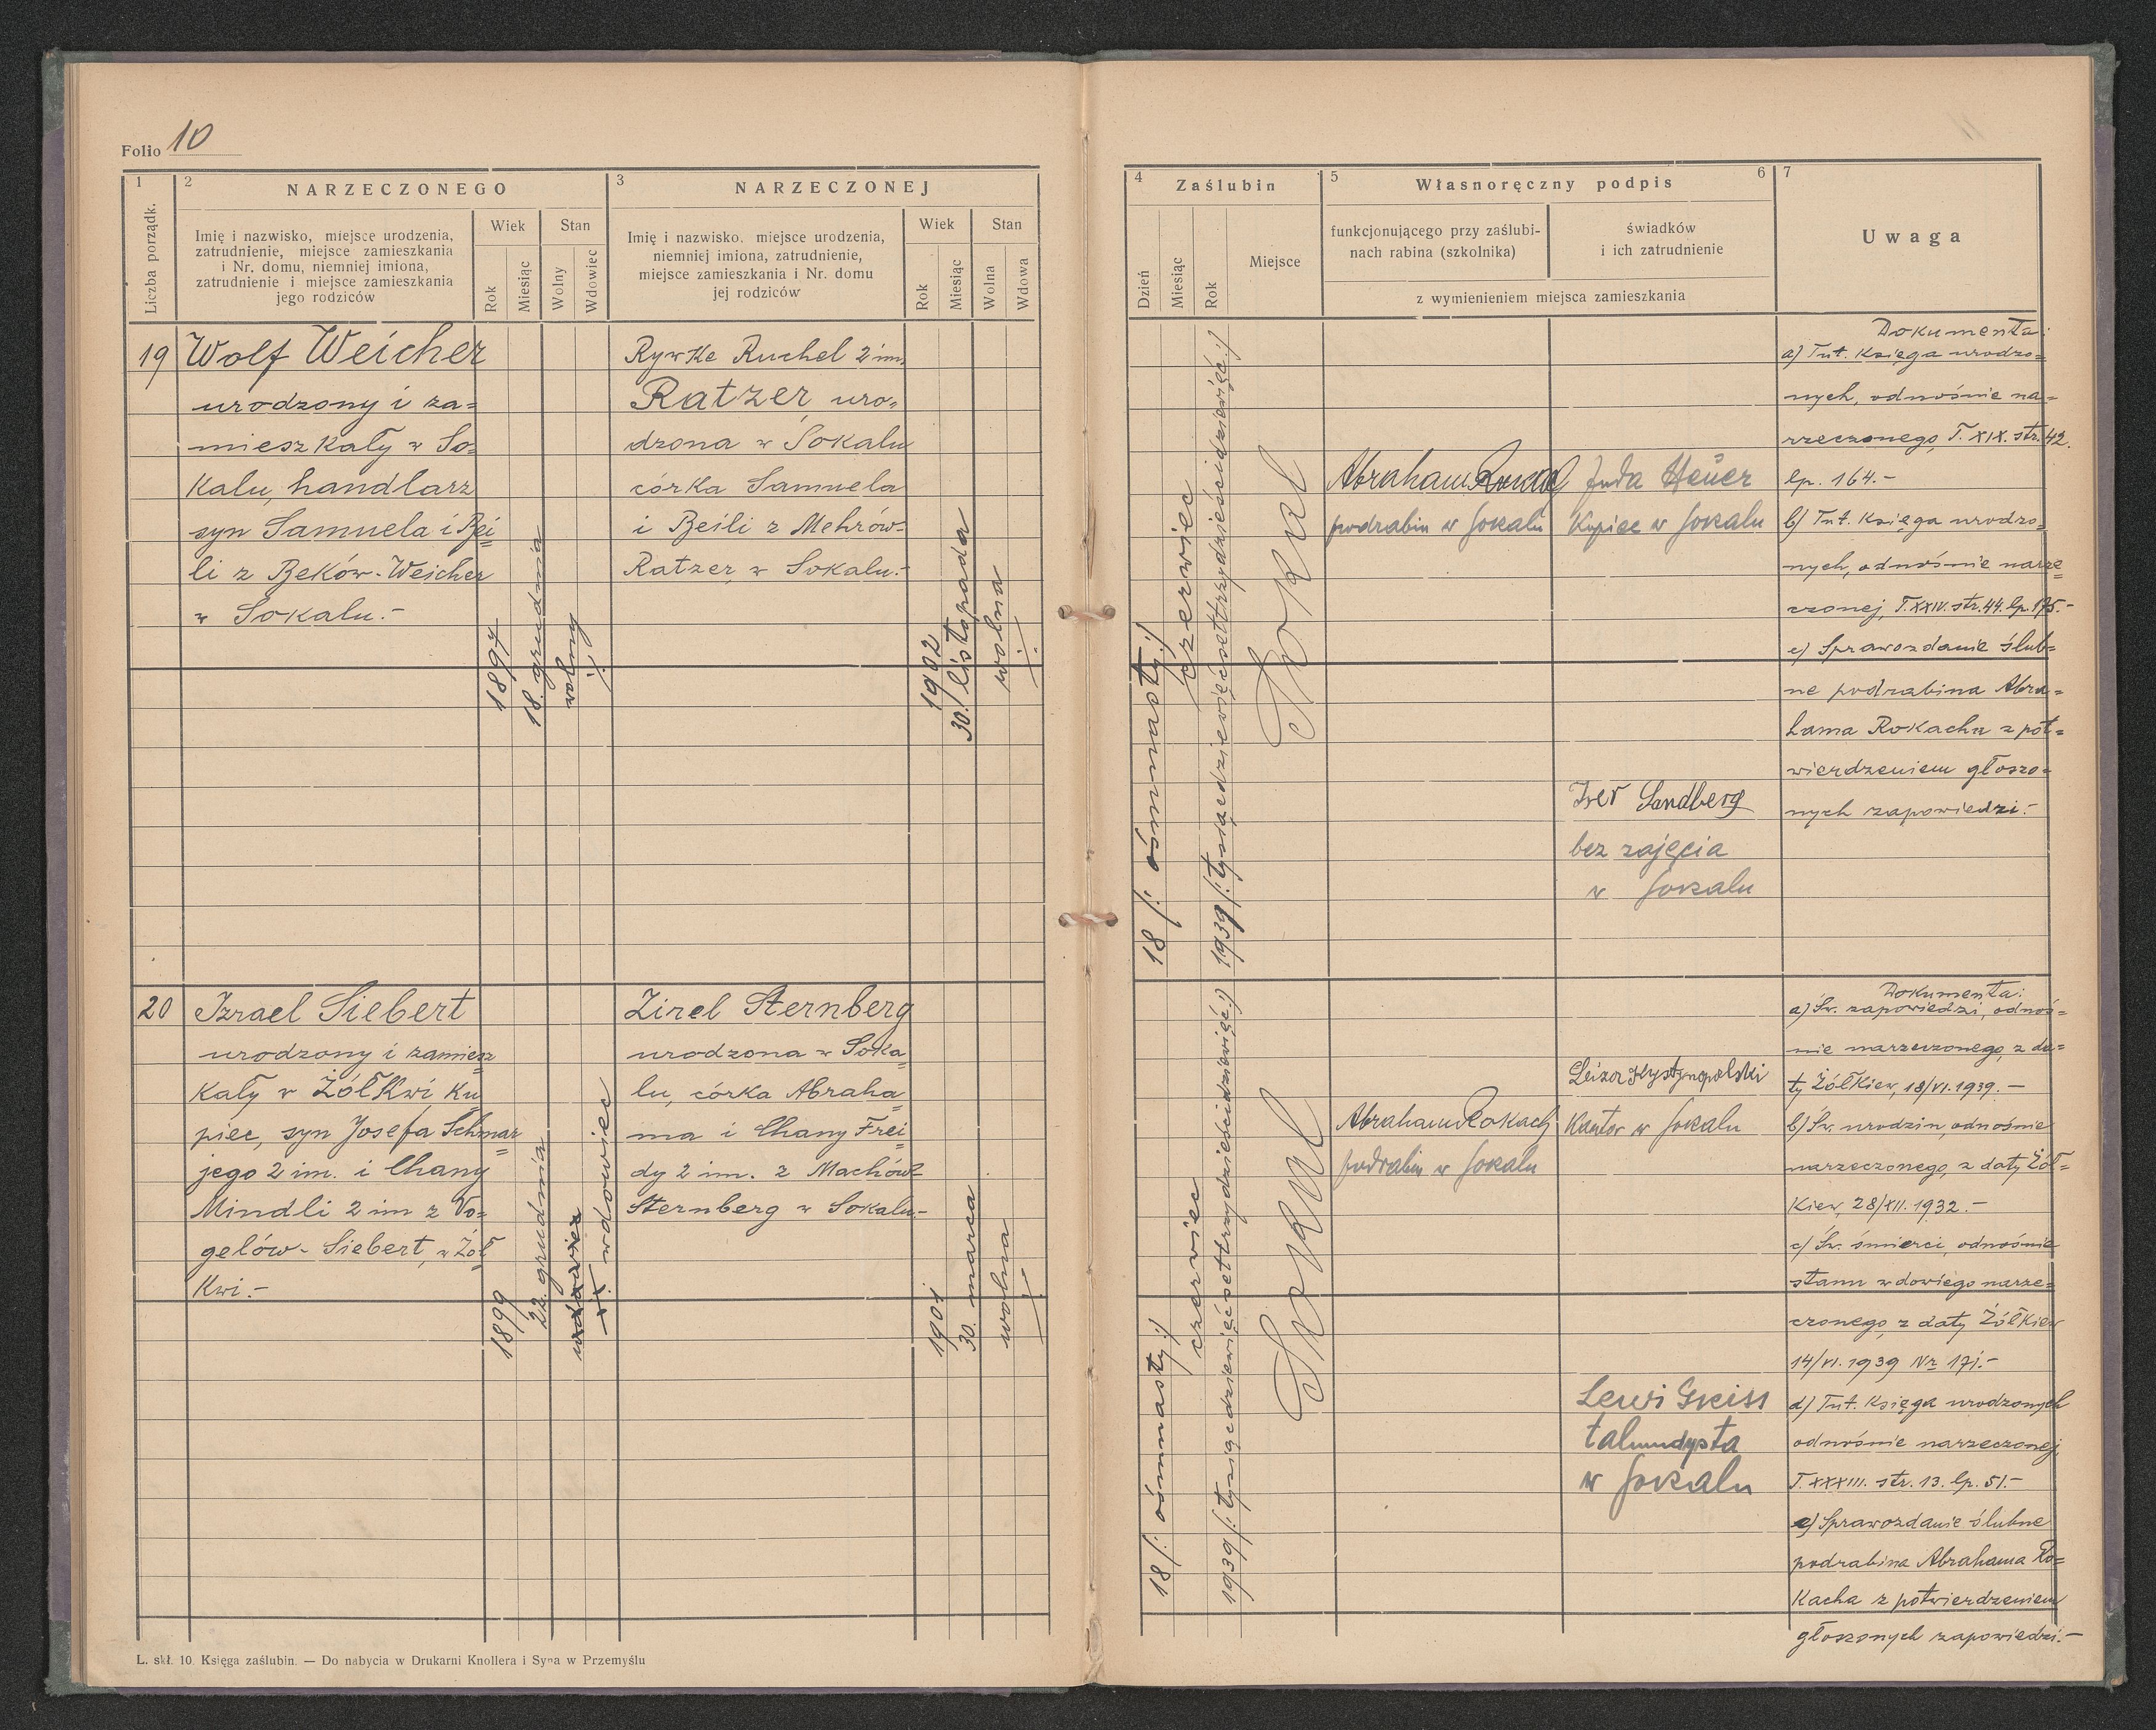 Folio 10
1
2
NARZECZONEGO
3
NARZECZONEJ
Liczba porządk.
Imię i nazwisko, miejsce urodzenia,
zatrudnienie, miejsce zamieszkania
i Nr. domu, niemniej imiona,
zatrudnienie i miejsce zamieszkania
jego rodziców
Wiek
Rok
Miesiąc
Stan
Wolny
Wdowiec
Imię i nazwisko, miejsce urodzenia,
niemniej imiona, zatrudnienie,
miejsce zamieszkania i Nr. domu
jej rodziców
Wiek
Rok
Miesiąc
Stan
Wolna
Wdowa
19
Wolf Weicher
urodzony i za=
mieszkały w So=
kalu, handlarz
syn Samuela i Bei=
li z Beków-Weicher
w Sokalu.-
1897
18. grudnia
wolny
Rywke Ruchel 2 im.
Ratzer uro=
dzona w Sokalu
córka Samuela
i Beili z Mehrów=
Ratzer, w Sokalu.-
1902
30. listopada
wolna
20
Izrael Siebert
urodzony i zamiesz=
kały w Żółkwi ku=
piec, syn Josefa Schmar=
jego 2 im. i Chany
Mindli 2 im z Vo=
gelów- Siebert, w Żół=
kwi.-
1899
22. grudnia
wdowiec
Zirel Sternberg
urodzona w Soka=
lu, córka Abraha=
ma i Chany Frei=
dy 2 im. z Machów=
Sternberg w Sokalu.-
1901
30. marca
wolna
L. skł. 10. Księga zaślubin. — Do nabycia w Drukarni Knollera i Syna w Przemyślu
4
Zaślubin
5
Własnoręczny podpis
6
7
Dzień
Miesiąc
Rok
Miejsce
funkcjonującego przy zaślubi-
nach rabina (szkolnika)
świadków
i ich zatrudnienie
z wymienieniem miejsca zamieszkania
Uwaga
18 /: ósmnasty :/
czerwiec
1939 /: tysiącdziewięćsettrzydzieścidziewięć :/
Sokal
Abraham Rokach
podrabin w Sokalu
Juda Heuer
Kupiec w Sokalu
Iser Sandberg
bez zajęcia
w Sokalu
Dokumenta:
a) Tut. Księga urodzo=
nych, odnośnie na=
rzeczonego, T. XIX. str. 42.
lp. 164.-
b) Tut. Księga urodzo=
nych, odnośnie narze=
czonej, T. XXIV. str. 44. lp. 175.-
c) Sprawozdanie ślub=
ne podrabina Abra=
hama Rokacha z pot=
wierdzeniem głoszo=
nych zapowiedzi.-
18 /: ósmnasty :/
czerwiec
1939 /: tysiącdziewięćsettrzydzieścidziewięć :/
Sokal
Abraham Rokach
podrabin w Sokalu
Leizor Krystynopolski
Kantor w Sokalu
Lewi Greiss
talmudysta
w Sokalu
Dokumenta:
a) Św. zapowiedzi, odnoś=
nie narzeczonego, z da=
ty Żółkiew, 18/VI. 1939.-
b) Św. urodzin, odnośnie
narzeczonego, z daty Żół=
kiew, 28/XII. 1932.-
c) Św. śmierci, odnośnie
stanu wdowiego narze=
czonego, z daty Żółkiew
14/VI. 1939 Nr 171.-
d) Tut. Księga urodzonych
odnośnie narzeczonej,
T. XXXIII. str. 13. lp. 51.-
e) Sprawozdanie ślubne
podrabina Abrahama Ro=
kacha z potwierdzeniem
głoszonych zapowiedzi.-